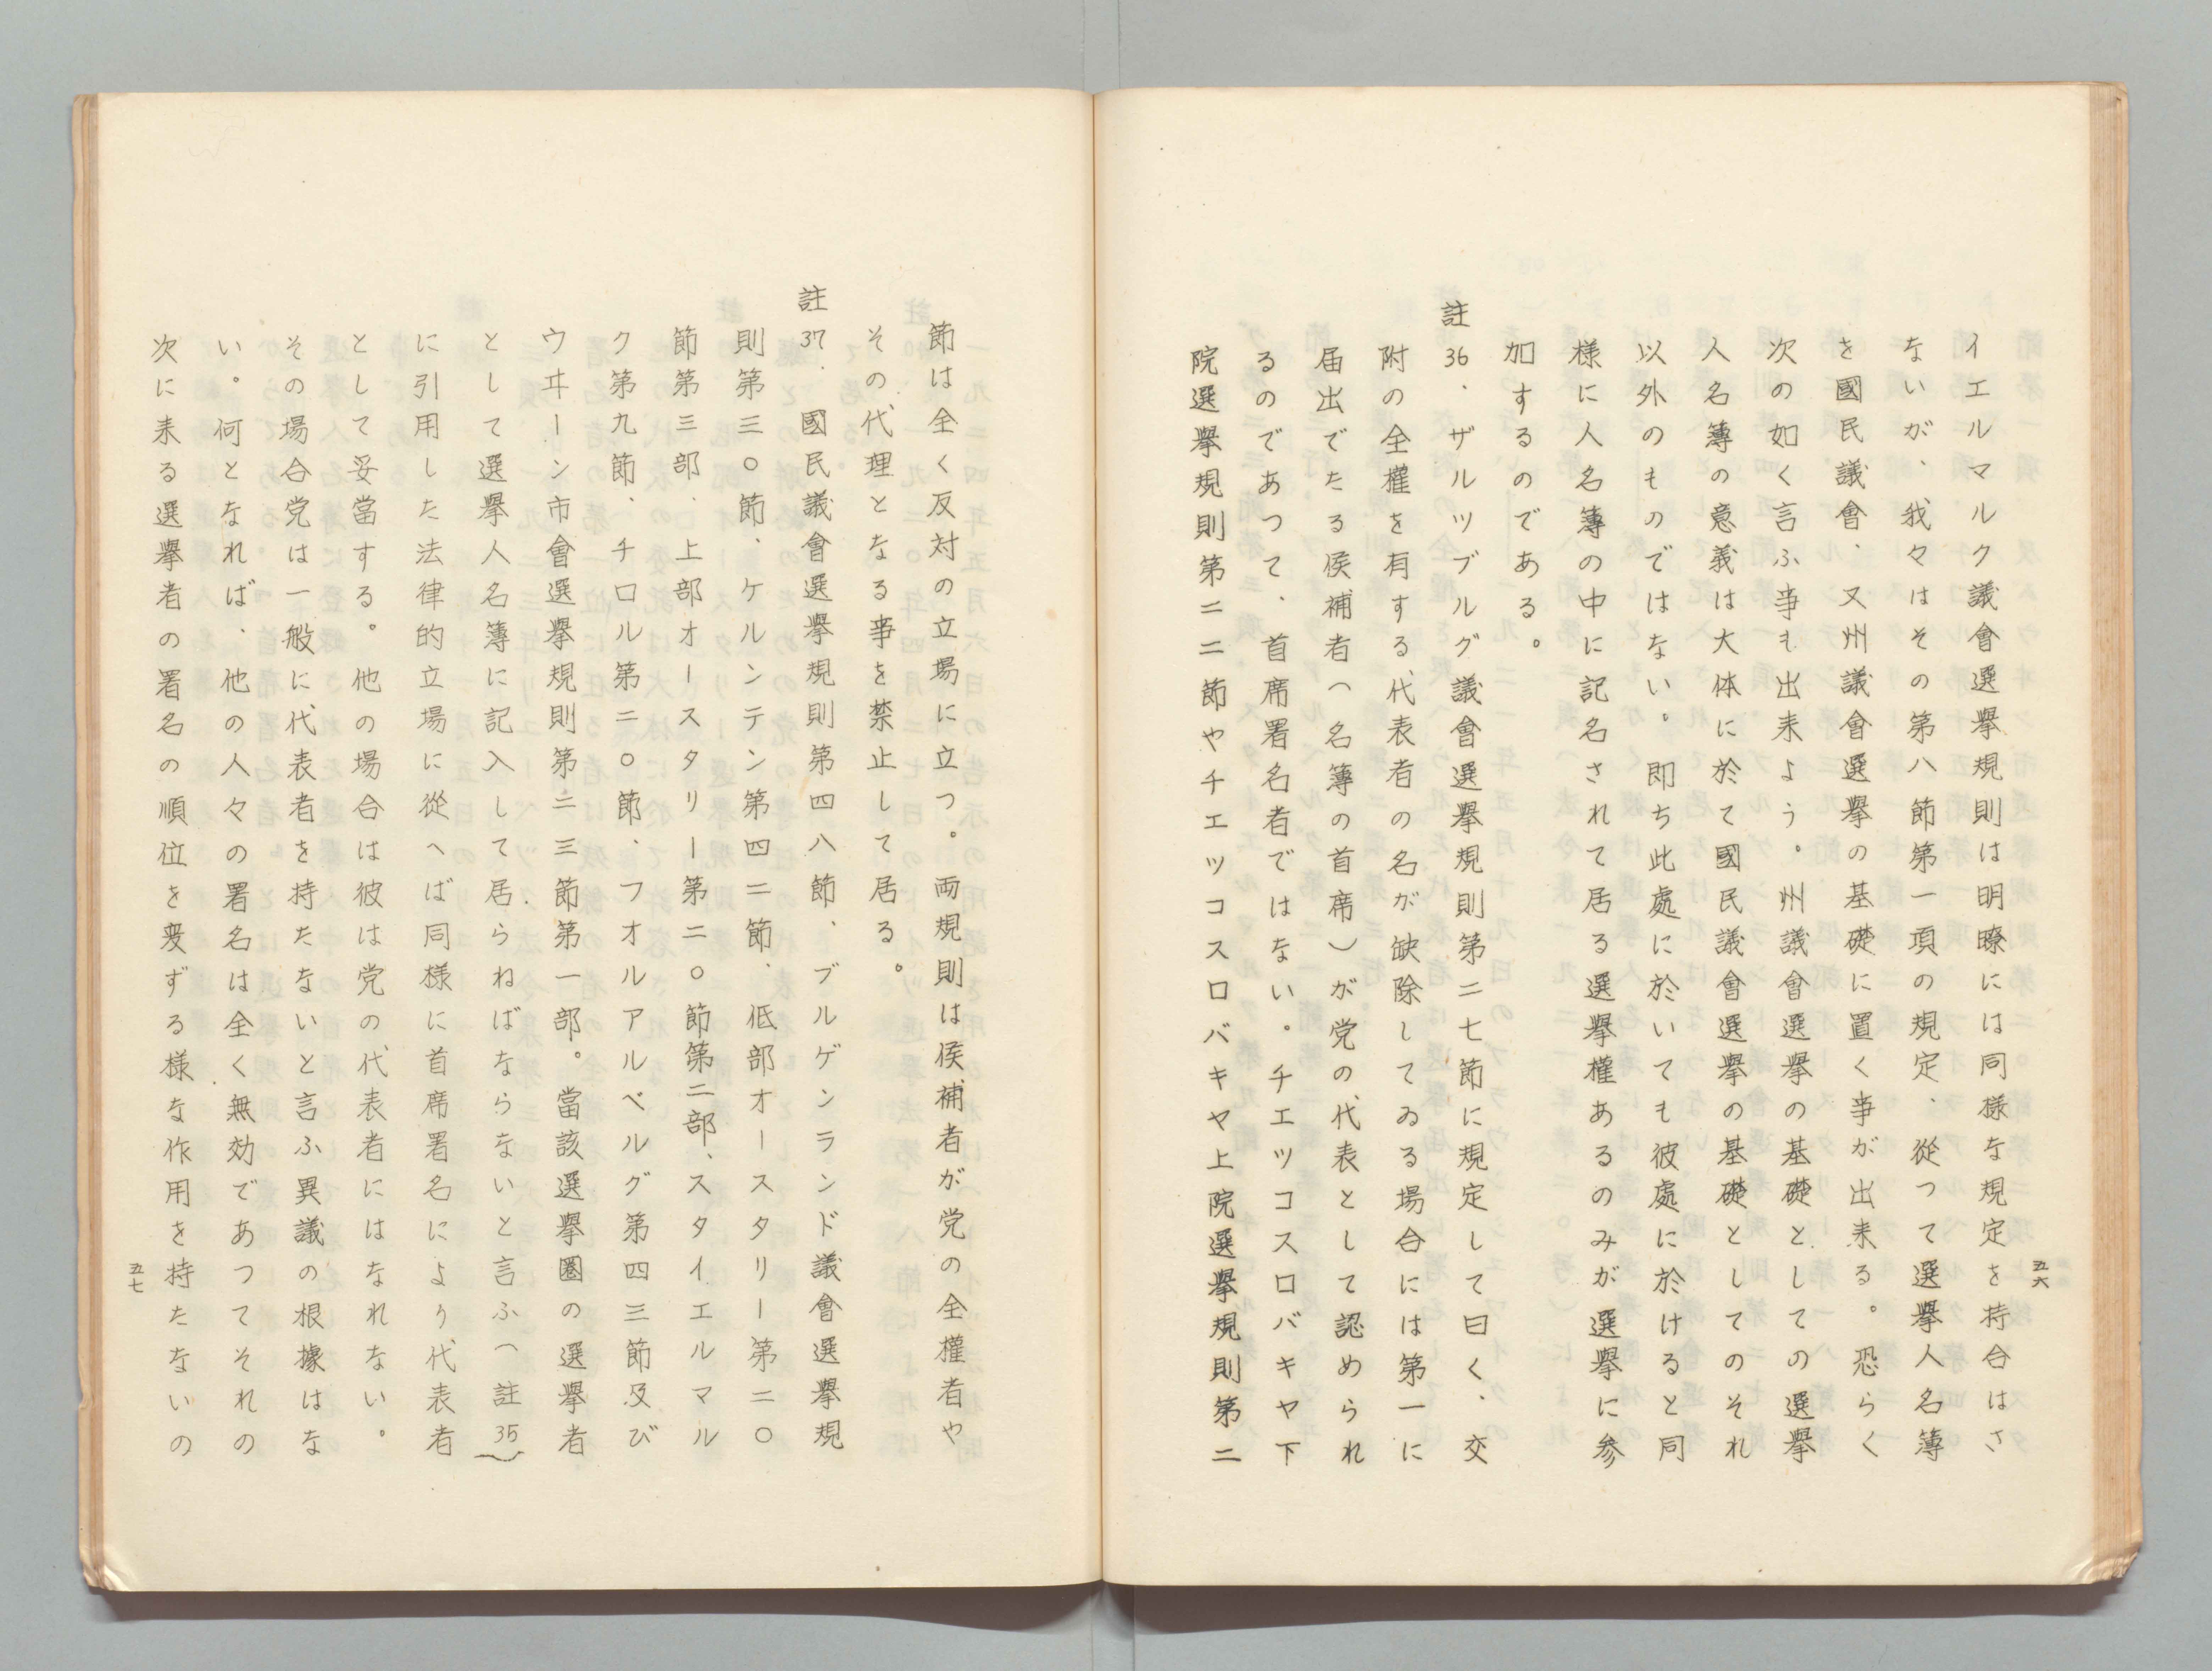 五六
イエルマルク議會選擧規則は明瞭には同様な規定を持合はさ
ないが、我々はその第八節第一項の規定、從つて選擧人名簿
を國民議會、又州議會選擧の基礎に置く事が出来る。恐らく
次の如く言ふ事も出来よう。州議會選擧の基礎としての選擧
人名簿の意義は大体に於て國民議會選擧の基礎としてのそれ
以外のものではない。即ち此處に於いても彼處に於けると同
様に人名簿の中に記名されて居る選擧權あるのみが選擧に参
加するのである。
註36．ザルツブルグ議會選擧規則第二七節に規定して曰く、交
附の全權を有する代表者の名が缺除してゐる場合には第一に
届出でたる候補者（名簿の首席）が党の代表として認められ
るのであつて、首席署名者ではない。チエツコスロバキヤ下
院選擧規則第二二節やチエツコスロバキヤ上院選擧規則第二
節は全く反対の立場に立つ。両規則は候補者が党の全權者や
その代理となる事を禁止して居る。
註37．國民議會選擧規則第四八節、ブルゲンランド議會選擧規
則第三〇節、ケルンテン第四二節、低部オースタリー第二〇
節第三部、上部オースタリー第二〇節第二部、スタイエルマル
ク第九節、チロル第二〇節、フオルアルベルグ第四三節及び
ウヰーン市會選擧規則第二三節第一部。當該選擧圏の選擧者
として選擧人名簿に記入して居らねばならないと言ふ（註35）
に引用した法律的立場に從へば同様に首席署名により代表者
として妥當する。他の場合は彼は党の代表者にはなれない。
その場合党は一般に代表者を持たないと言ふ異議の根據はな
い。何となれば、他の人々の署名は全く無効であつてそれの
次に来る選擧者の署名の順位を変ずる様な作用を持たないの
五七